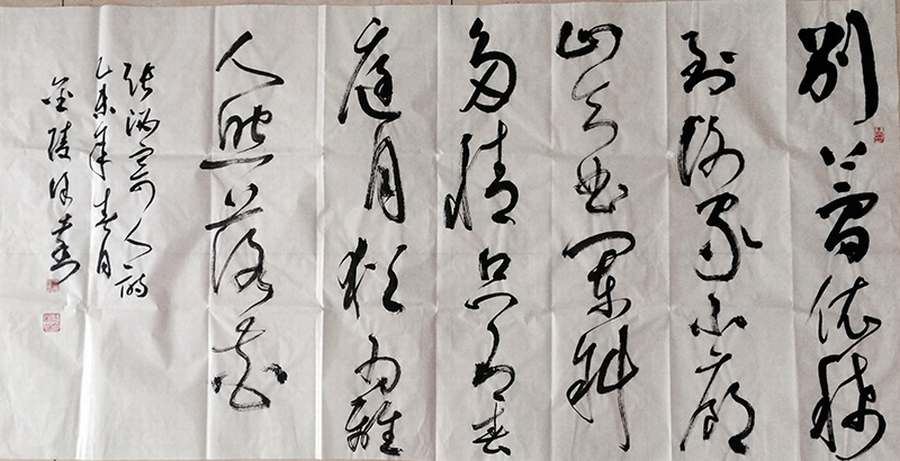 别梦依依
到谢家小廊
回合曲阑斜
多情只有春
庭月犹为離
人照落花
张泌寄人诗
乙未年春月
金陵徐